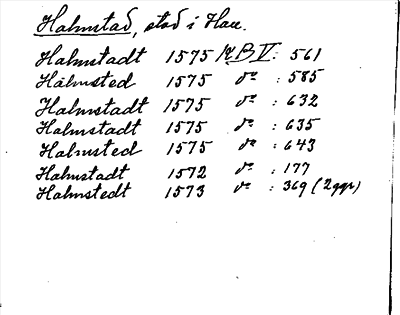 Halmstad, stad i Hall.
Halmstadt 1575 K.B.V: 561
Halmsted 1575 do : 585
Halmstadt 1575 do : 632
Halmstadt 1575 do : 635
Halmsted 1575 do : 643
Halmstadt 1572 do : 177
Halmstedt 1573 do : 369 (2 ggr)